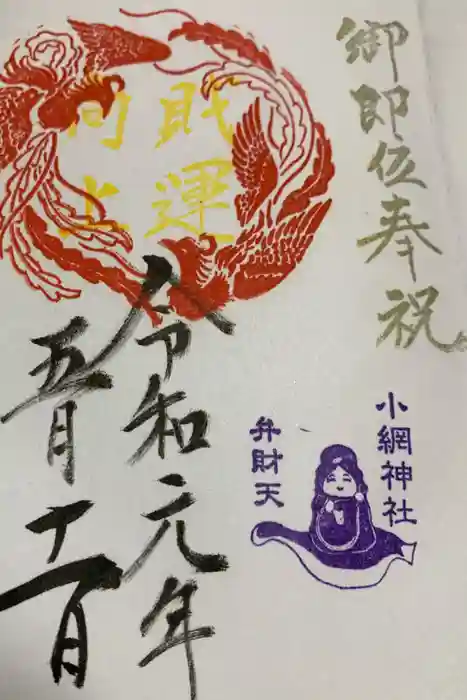 御即位奉祝
財運
向上
令和元年
五月十一日
小網神社
弁財天